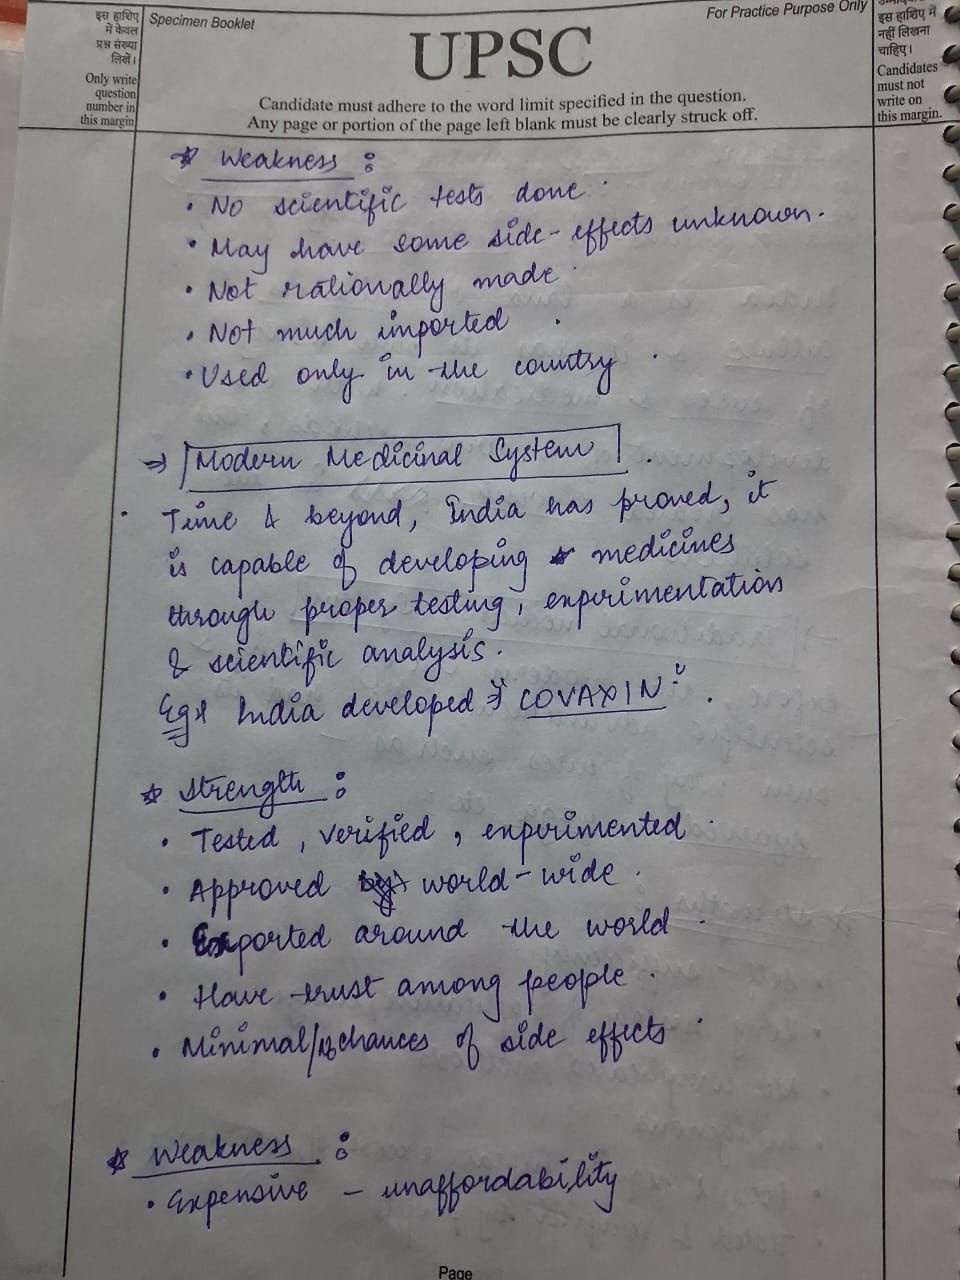 इस हाशिए में केवल प्रश्न संख्या लिखें।
Only write question number in this margin
Specimen Booklet
For Practice Purpose Only
UPSC
Candidate must adhere to the word limit specified in the question.
Any page or portion of the page left blank must be clearly struck off.
इस हाशिए में नहीं लिखना चाहिए।
Candidates must not write on this margin.
Weakness :
• No scientific tests done.
• May have some side-effects unknown.
• Not rationally made.
• Not much imported.
• Used only in the country.
⇒ Modern Medicinal System.
• Time & beyond, India has proved, it
is capable of developing medicines
through proper testing, experimentation
& scientific analysis.
Eg: India developed "COVAXIN".
Strength :
• Tested, verified, experimented.
• Approved world-wide.
• Exported around the world.
• Have trust among people.
• Minimal/ chances of side effects.
Weakness :
• Expensive – unaffordability
Page